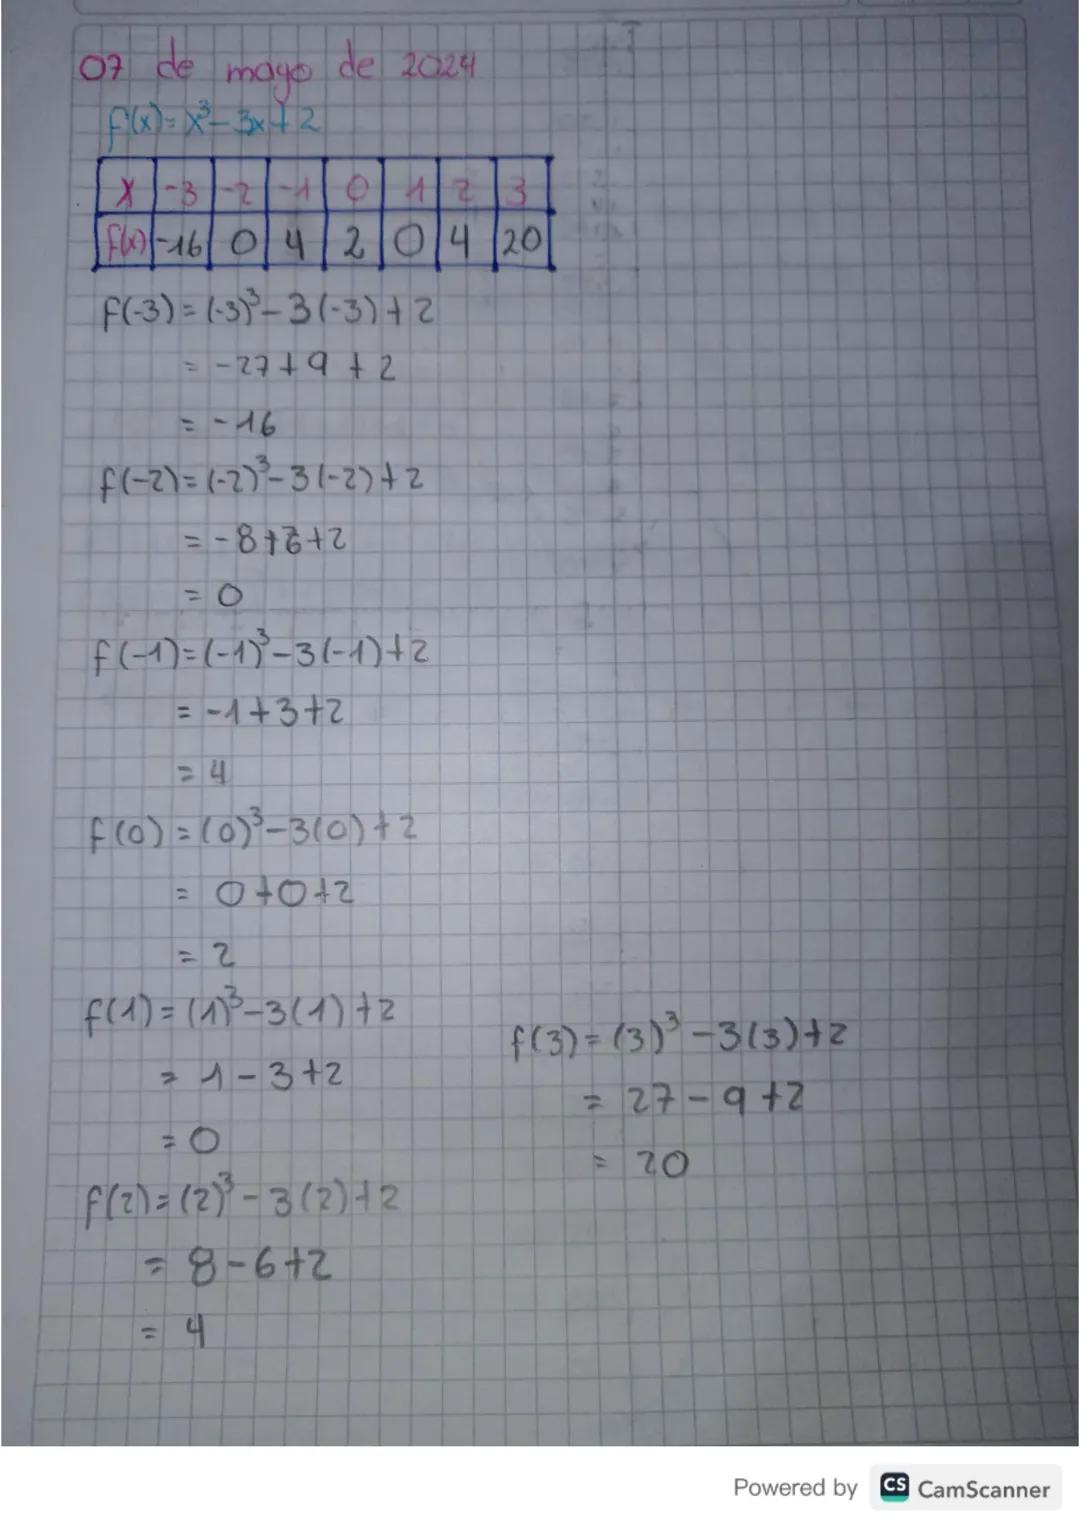 07 de mayo de 2024
f(x)=x³-3x+2
x -3 -2 -1 0 1 2 3
f(x) -16 0 4 2 0 4 20
f(-3)=(-3)³-3(-3)+2
= -27+9+2
= -16
f(-2)=(-2)³-3(-2)+2
= -8+6+2
= 0
f(-1)=(-1)³-3(-1)+2
= -1+3+2
= 4
f(0)=(0)³-3(0)+2
= 0+0+2
= 2
f(1)=(1)³-3(1)+2
= 1-3+2
= 0
f(2)=(2)³-3(2)+2
= 8-6+2
= 4
f(3)=(3)³-3(3)+2
= 27-9+2
= 20
Powered by CS CamScanner